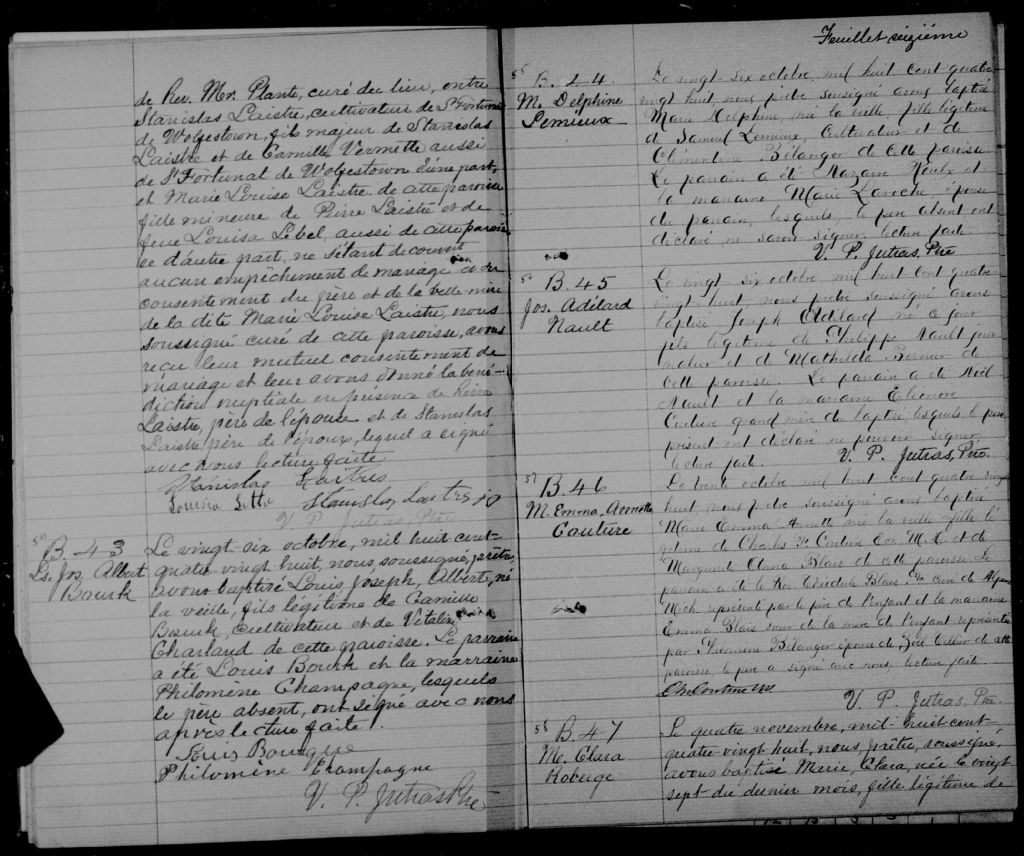 de Rev. Mr. Plante, curé du lieu, entre
Stanislas Laistre, cultivateur de St Fortunat
de Wolfestown, fils majeur de Stanislas
Laistre et de Camille Vermette aussi
de St Fortunat de Wolfestown d'une part,
et Marie Louise Laistre de cette paroisse
fille mineure de Pierre Laistre et de
feue Louisa Lebel, aussi de cette paroisse
d'autre part, ne s'étant découvert
aucun empêchement de mariage et du
consentement du père et de la belle-mère
de la dite Marie Louise Laistre, nous
soussigné curé de cette paroisse, avons
reçu leur mutuel consentement de
mariage et leur avons donné la béné-
diction nuptiale en présence de Pierre
Laistre, père de l'épouse et de Stanislas
Laistre père de l'époux, lequel a signé
avec nous lecture faite
Stanislas
Stanislas
V. P. Jutras, Ptre
B. 43
Ls. Jos. Albert
Bourk
Le vingt six octobre, mil huit cent-
quatre vingt huit, nous, soussigné, prêtre
avons baptisé Louis, Joseph, Alberte, né
la veille, fils légitime de Camille
Bourk, cultivateur et de Vitaline
Charland de cette paroisse. Le parrain
a été Louis Bourk et la marraine
Philomène Champagne, lesquels
le père absent, ont signé avec nous
après lecture faite.
Louis Bourque
Philomène Champagne
V. P. Jutras Ptre
Feuillet seizième
55
B. 44.
M. Delphine
Lemieux
Le vingt-six octobre, mil huit cent quatre
vingt huit, nous prêtre soussigné avons baptisé
Marie Delphine, né la veille, fille légitime
de Samuel Lemieux, Cultivateur et de
Clémentine Bélanger de cette paroisse.
Le parrain a été Nazaire Houle et
la marraine Marie Laroche épouse
du parrain, lesquels, le père absent ont
déclaré ne savoir signer, lecture faite.
V. P. Jutras, Ptre
56
B. 45
Jos. Adélard
Nault
Le vingt six octobre mil huit cent quatre
vingt huit, nous prêtre soussigné avons
baptisé Joseph Adélard né ce jour
fils légitime de Philippe Nault jour
nalier et de Mathilda Bernier de
cette paroisse. Le parrain a été Noël
Nault et la marraine Eléonore
Couture grand'mère du baptisé lesquels le père
présent ont déclaré ne pouvoir signer,
lecture faite. V. P. Jutras, Ptre.
57
B. 46
M. Emma, Annette
Couture
Le trente octobre mil huit cent quatre vingt
huit, nous prêtre soussigné avons baptisé
Marie Emma Annette née la veille fille lé
gitime de Charles F. Couture M. et de
Marguerite Anna Blais de cette paroisse. Le
parrain a été le Rev Théodule Blais curé de Alpena
Mich. représenté par le père de l'enfant et la marraine
Emma Blais sœur de la mère de l'enfant représentée
par Philomène Bélanger épouse de Joël de cette
paroisse, le père a signé avec nous, lecture faite.
Ch. Couture
V. P. Jutras, Ptre.
58
B. 47
M. Clara
Roberge
Le quatre novembre, mil-huit cent-
quatre vingt huit, nous, prêtre, soussigné,
avons baptisé Marie, Clara, née le vingt
sept du dernier mois, fille légitime de